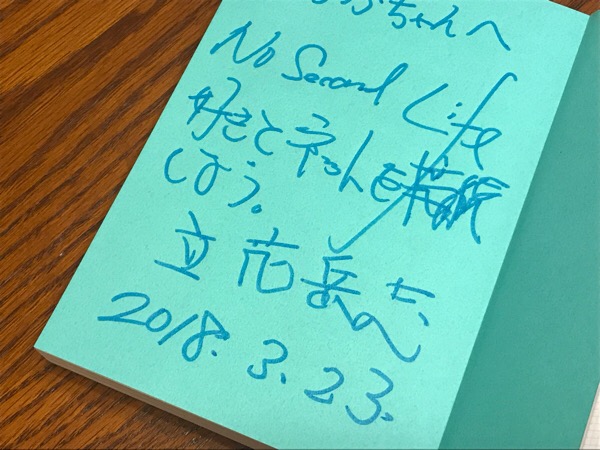 ちゃんへ
No Second Life
好きとネットを接続
しよう。
立花岳志
2018.3.23.